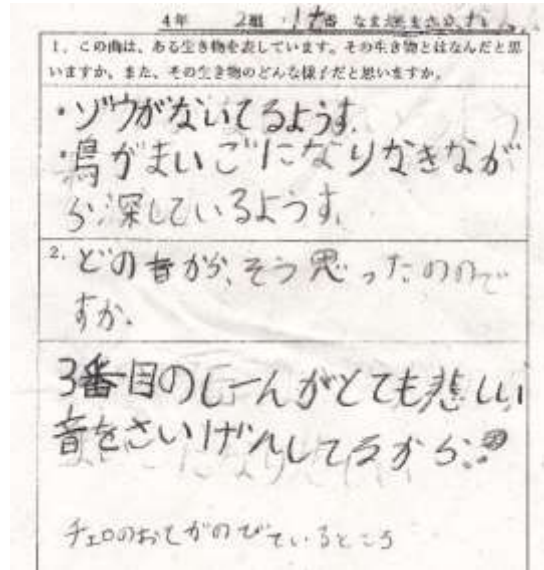 4年 2組 番 なまえ
1, この曲は、ある生き物を表しています。その生き物とはなんだと思
いますか。また、その生き物のどんな様子だと思いますか。
・ゾウがないてるようす。
・鳥がまいごになりなきなが
ら深しているようす。
2. どの音から、そう思ったのので
すか。
3番目のしーんがとても悲しい
音をさいげんしてるから。
チェロのおとがのびているところ